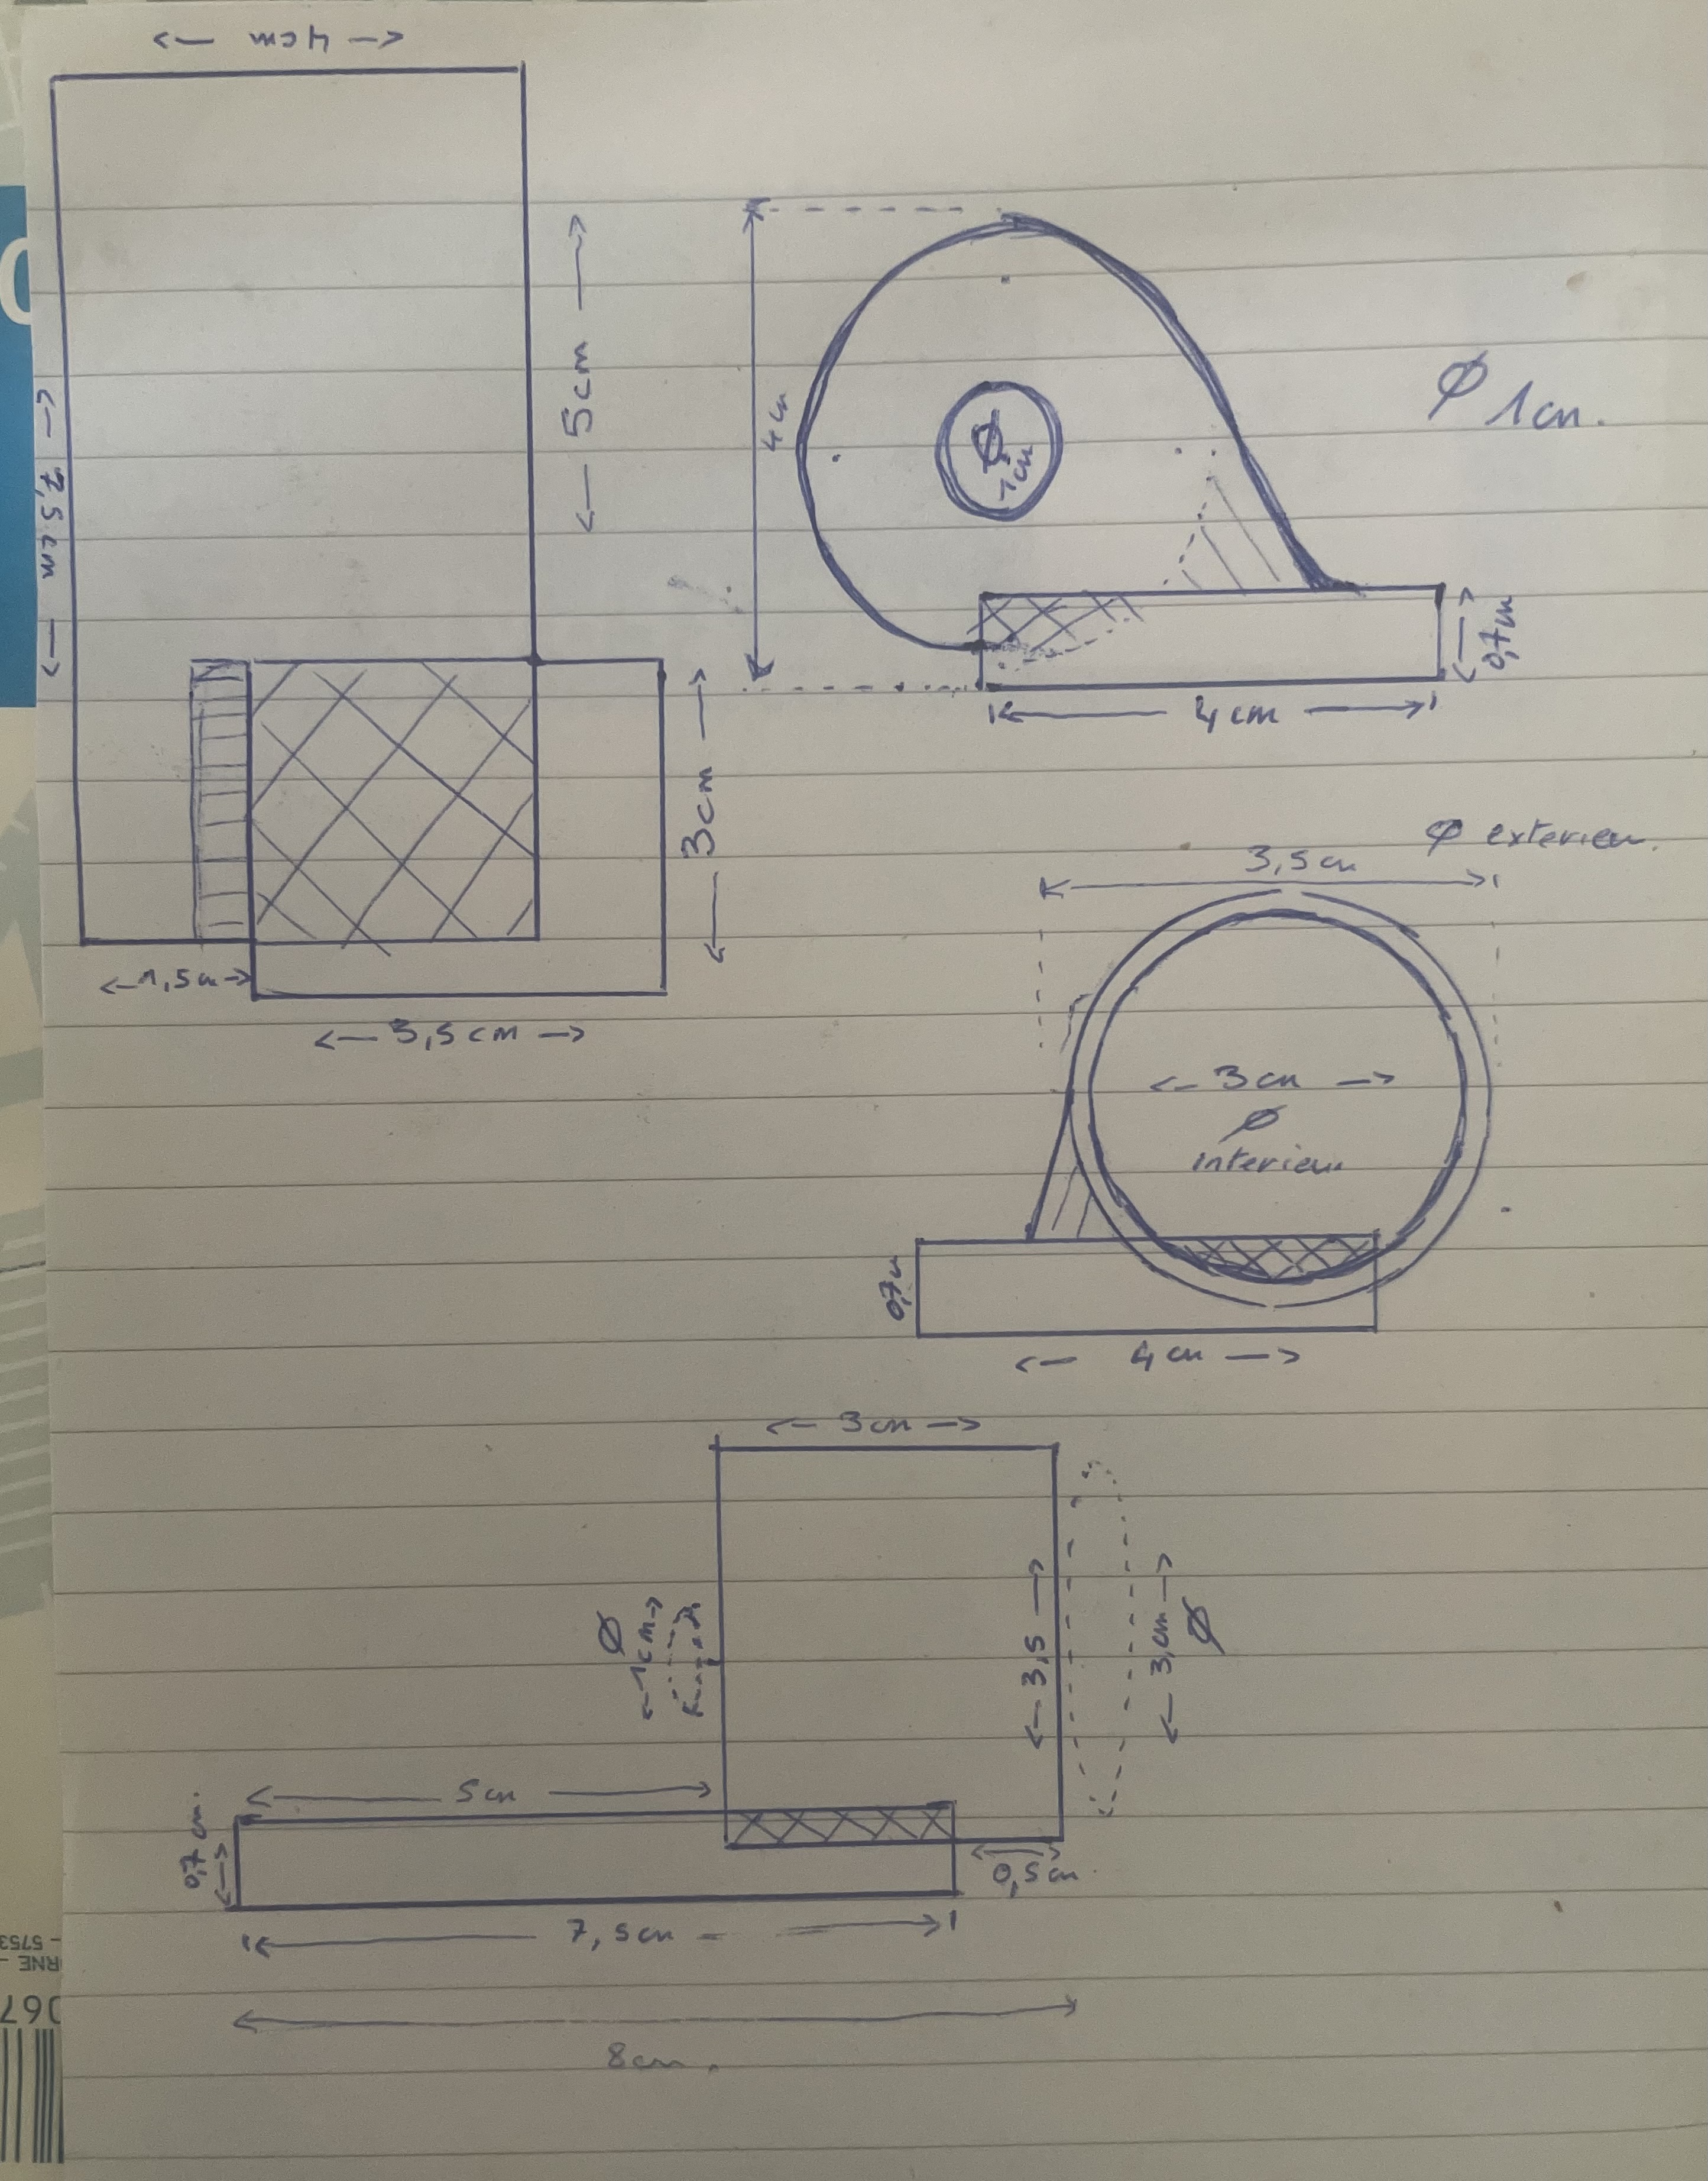 4cm
7,5 cm
5cm
3cm
1,5cm
3,5cm
4cm
Ø
1cm
Ø 1cm.
0,7cm
4cm
Ø exterieur.
3,5cm
3cm
Ø
interieur
0,7cm
4cm
3cm
Ø
1cm
3,5
3cm
Ø
5cm
0,7cm.
0,5cm.
7,5cm
8cm.
5753
RNE -
067